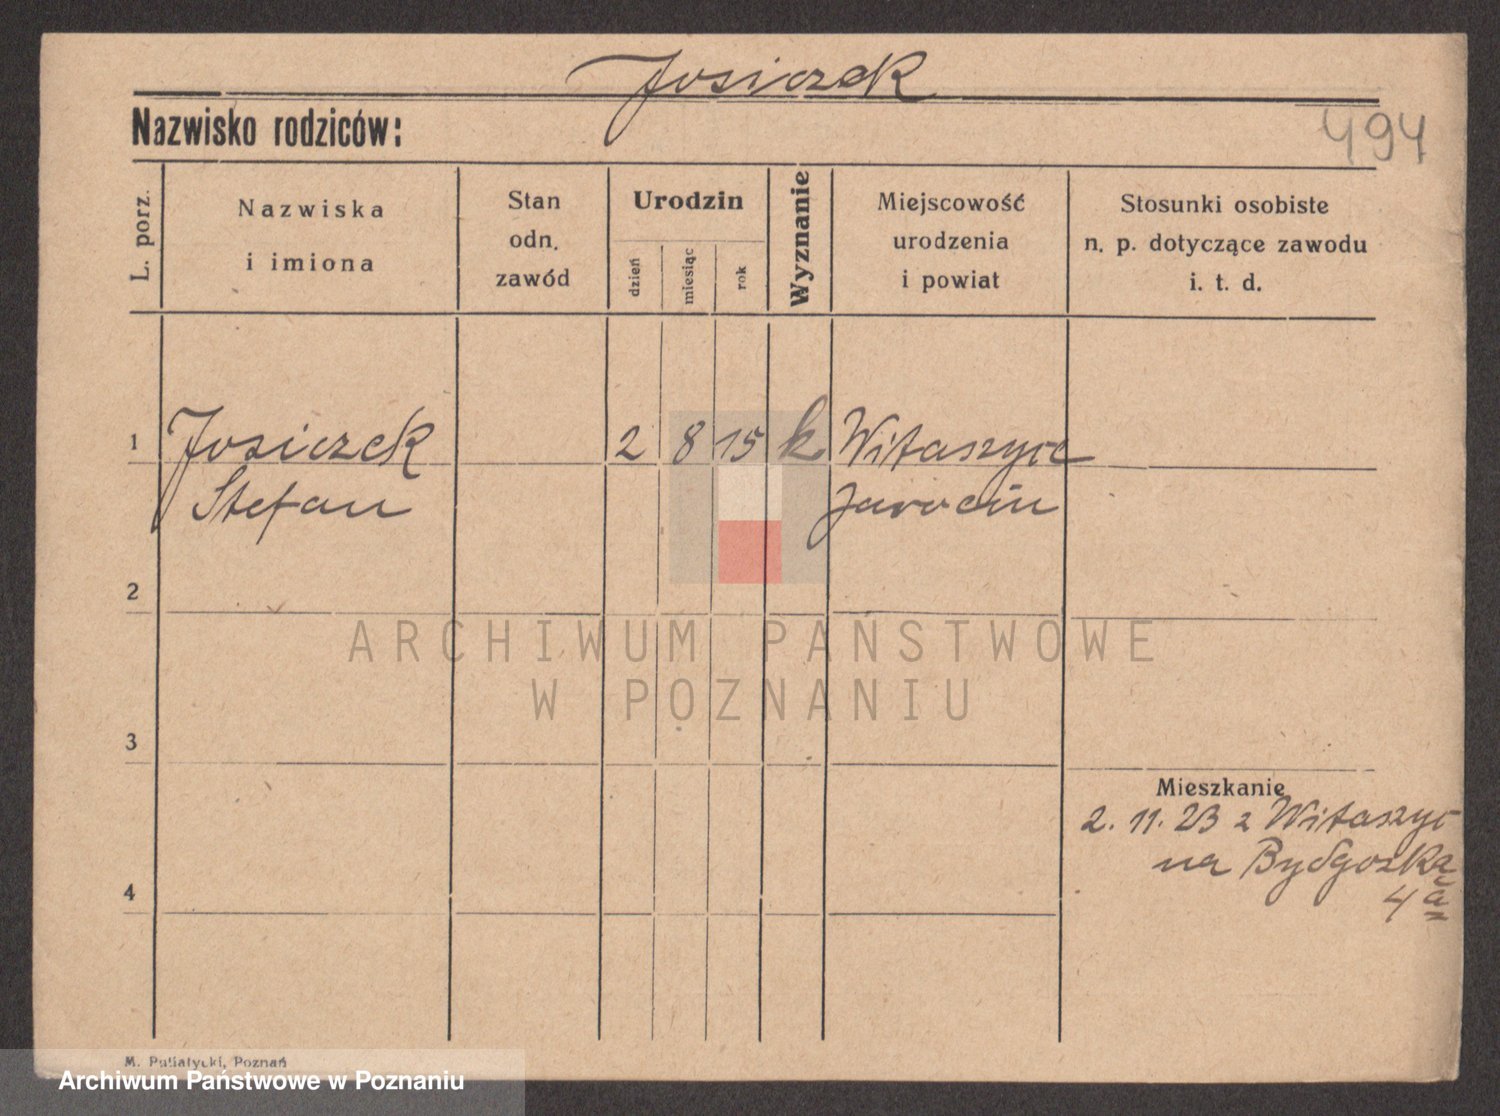 Josiczek
Nazwisko rodziców:
494
L. porz.
Nazwiska
i imiona
Stan
odn.
zawód
Urodzin
dzień
miesiąc
rok
Wyznanie
Miejscowość
urodzenia
i powiat
Stosunki osobiste
n. p. dotyczące zawodu
i. t. d.
1 Josiczek 2 8 15 k Witaszyce
Stefan Jarocin
2
ARCHIWUM PAŃSTWOWE
W POZNANIU
3
Mieszkanie
2. 11. 23 z Witaszyc
na Bydgoską
4
4 a
M. Pullatycki, Poznań
Archiwum Państwowe w Poznaniu